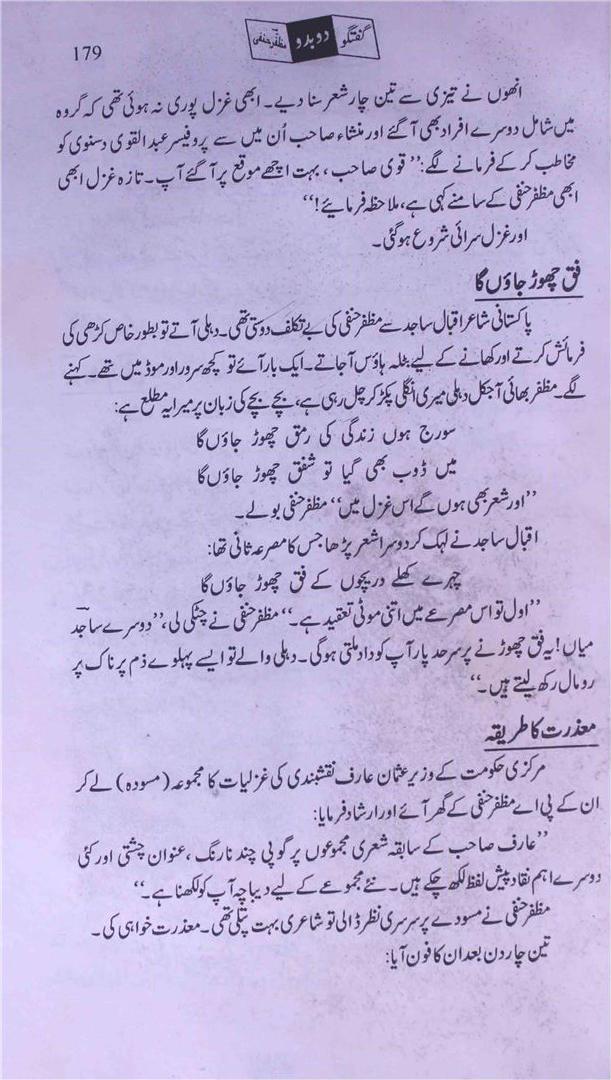 گفتگو دوبدو مظفر حنفی
179
انھوں نے تیزی سے تین چار شعر سنا دیے۔ ابھی غزل پوری نہ ہوئی تھی کہ گروہ
میں شامل دوسرے افراد بھی آگئے اور منشاء صاحب اُن میں سے پروفیسر عبدالقوی دسنوی کو
مخاطب کر کے فرمانے لگے: ”قوی صاحب، بہت اچھے موقع پر آگئے آپ۔ تازہ غزل ابھی
ابھی مظفر حنفی کے سامنے کہی ہے، ملاحظہ فرمائیے!“
اور غزل سرائی شروع ہوگئی۔
فق چھوڑ جاؤں گا
پاکستانی شاعر اقبال ساجد سے مظفر حنفی کی بے تکلف دوستی تھی۔ دہلی آتے تو بطور خاص کڑھی کی
فرمائش کرتے اور کھانے کے لیے بٹلہ ہاؤس آجاتے۔ ایک بار آئے تو کچھ سرور اور موڈ میں تھے۔ کہنے
لگے۔ مظفر بھائی آجکل دہلی میری انگلی پکڑ کر چل رہی ہے، بچے بچے کی زبان پر میرا یہ مطلع ہے:
سورج ہوں زندگی کی رمق چھوڑ جاؤں گا
میں ڈوب بھی گیا تو شفق چھوڑ جاؤں گا
”اور شعر بھی ہوں گے اس غزل میں“ مظفر حنفی بولے۔
اقبال ساجد نے لہک کر دوسرا شعر پڑھا جس کا مصرعہ ثانی تھا:
چہرے کھلے دریچوں کے فق چھوڑ جاؤں گا
”اول تو اس مصرعے میں اتنی موٹی تعقید ہے۔“ مظفر حنفی نے چٹکی لی، ”دوسرے ساجد
میاں! یہ فق چھوڑنے پر سرحد پار آپ کو داد ملتی ہوگی۔ دہلی والے تو ایسے پہلوے ذم پر ناک پر
رومال رکھ لیتے ہیں۔“
معذرت کا طریقہ
مرکزی حکومت کے وزیر عثمان عارف نقشبندی کی غزلیات کا مجموعہ (مسودہ) لے کر
ان کے پی اے مظفر حنفی کے گھر آئے اور ارشاد فرمایا:
”عارف صاحب کے سابقہ شعری مجموعوں پر گوپی چند نارنگ، عنوان چشتی اور کئی
دوسرے اہم نقاد پیش لفظ لکھ چکے ہیں۔ نئے مجموعے کے لیے دیباچہ آپ کو لکھنا ہے۔“
مظفر حنفی نے مسودے پر سرسری نظر ڈالی تو شاعری بہت پتلی تھی۔ معذرت خواہی کی۔
تین چار دن بعد ان کا فون آیا: